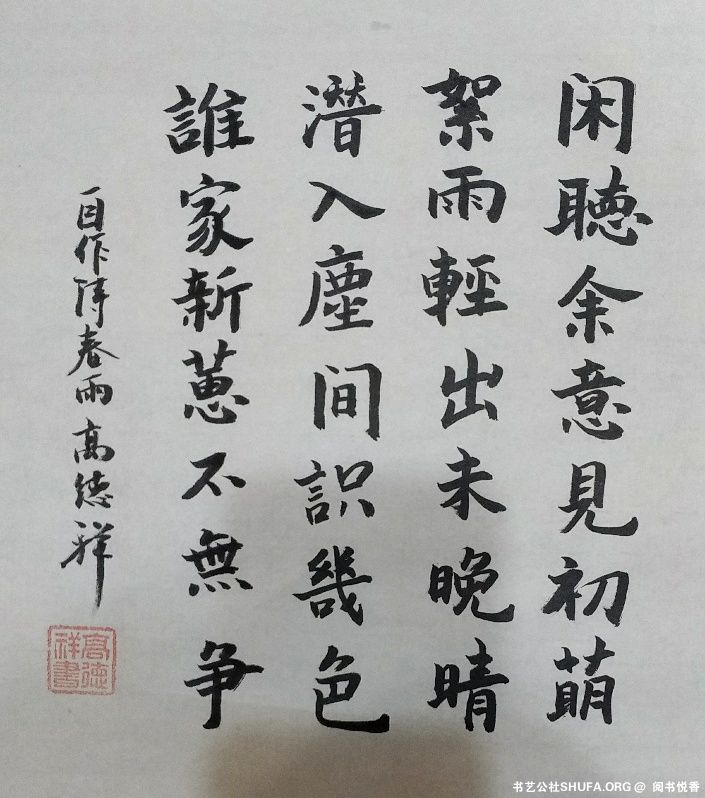 闲聴余意見初萌
絮雨輕出未晚晴
潛入塵间識幾色
誰家新蔥不無争
自作詩春雨 高德祥
高德祥書
书艺公社SHUFA.ORG @ 阅书悦香